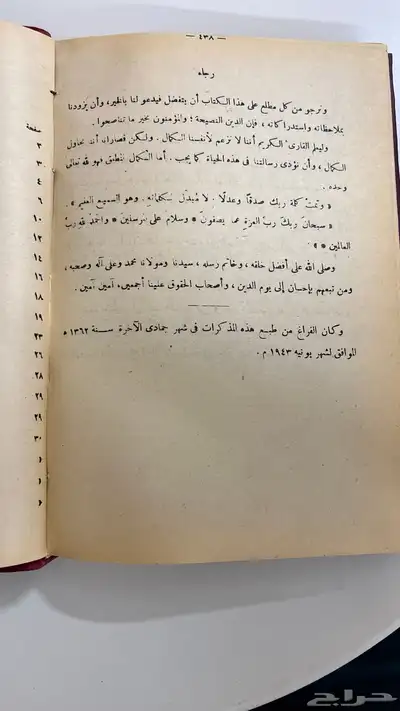 — ٤٣٨ —
رجاء
ونرجو من كل مطلع على هذا الكتاب أن يتفضل فيدعو لنا بالخير، وأن يزودنا
بملاحظاته واستدراكاته، فإن الدين النصيحة؛ والمؤمنون بخير ما تناصحوا.
وليعلم القارىء الكريم أننا لا نزعم لأنفسنا الكمال. ولكن قصارانا أننا نحاول
الكمال، وأن نؤدى رسالتنا فى هذه الحياة كما يجب. أما الكمال المطلق فهو لله تعالى
وحده.
« وتمت كلمة ربك صدقاً وعدلاً. لا مُبدّل لكلماته. وهو السميع العليم ».
« سبحان ربك ربّ العزة عما يصفون * وسلام على المرسلين * والحمد لله ربّ
العالمين * ».
وصلى الله على أفضل خلقه، وخاتم رسله، سيدنا ومولانا محمد وعلى آله وصحبه،
ومن تبعهم بإحسان إلى يوم الدين، وأصحاب الحقوق علينا أجمعين. آمين آمين.
وكان الفراغ من طبع هذه المذكرات فى شهر جمادى الآخرة سنة ١٣٦٢ هـ
الموافق لشهر يونيه ١٩٤٣ م.
صفحة
٣
٣
٤
٦
١٠
١٢
١٤
١٦
١٨
١٩
٢٣
٢٦
٢٨
٢٩
٢٩
٣٠
حراج